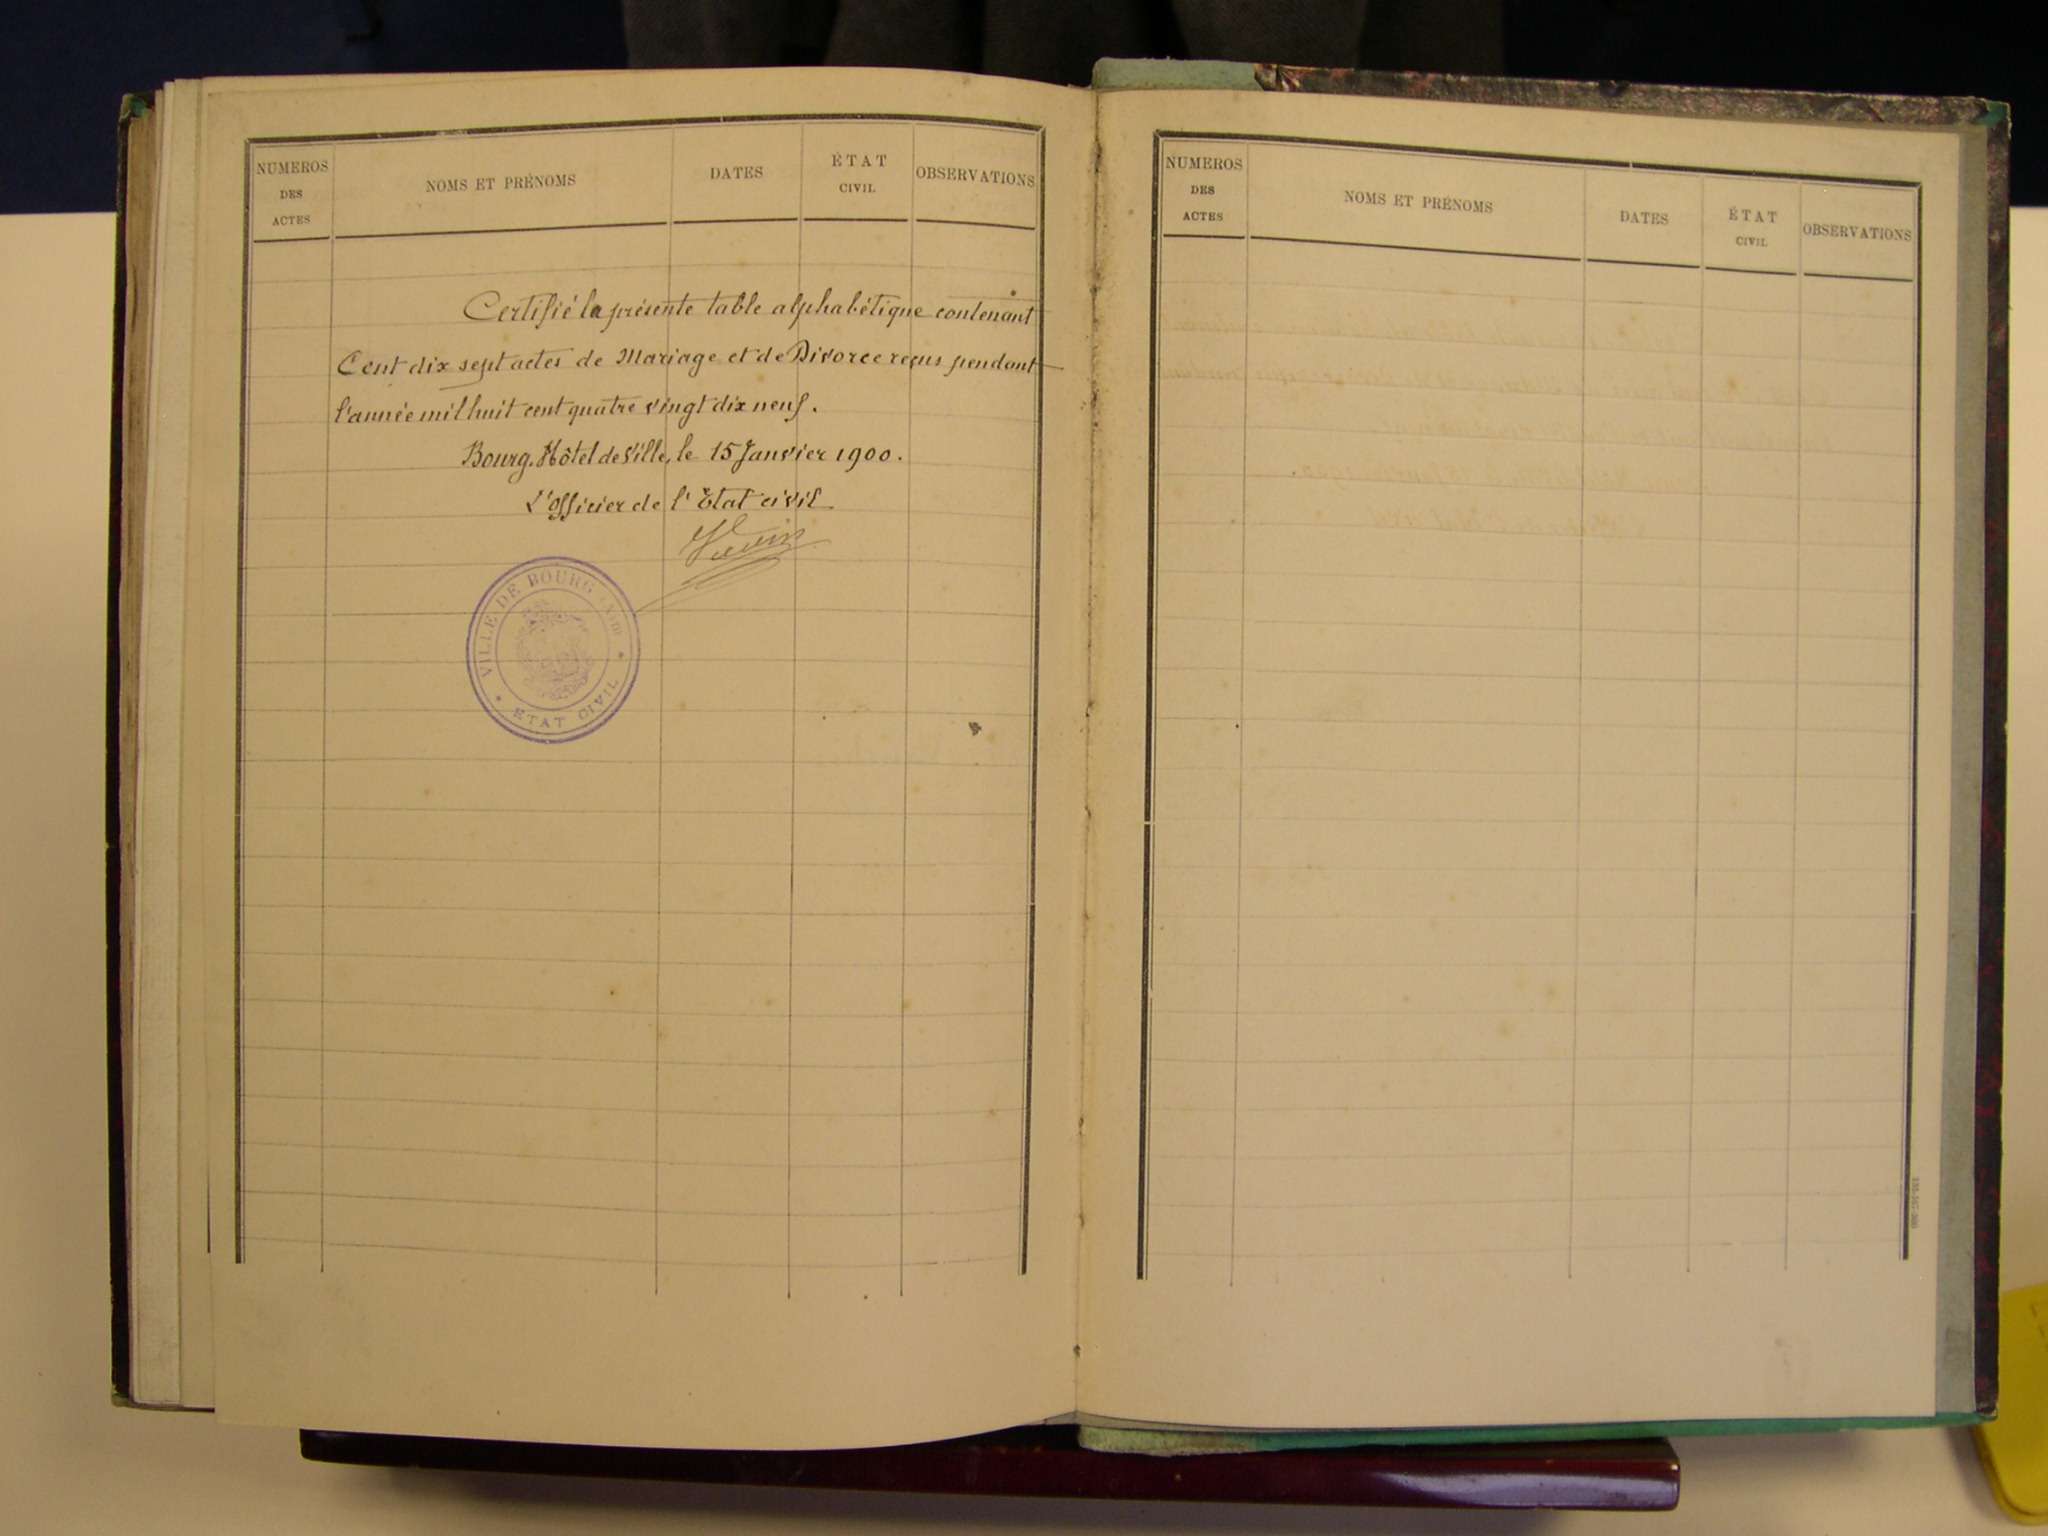 NUMEROS
DES
ACTES
NOMS ET PRÉNOMS
DATES
ÉTAT
CIVIL
OBSERVATIONS
Certifié la présente table alphabétique contenant
Cent dix sept actes de Mariage et de Divorce reçus pendant
l'année mil huit cent quatre vingt dix neuf.
Bourg, Hôtel de Ville, le 15 Janvier 1900.
L'Officier de l'Etat civil
VILLE DE BOURG (Ain)
ETAT CIVIL
NUMEROS
DES
ACTES
NOMS ET PRÉNOMS
DATES
ÉTAT
CIVIL
OBSERVATIONS